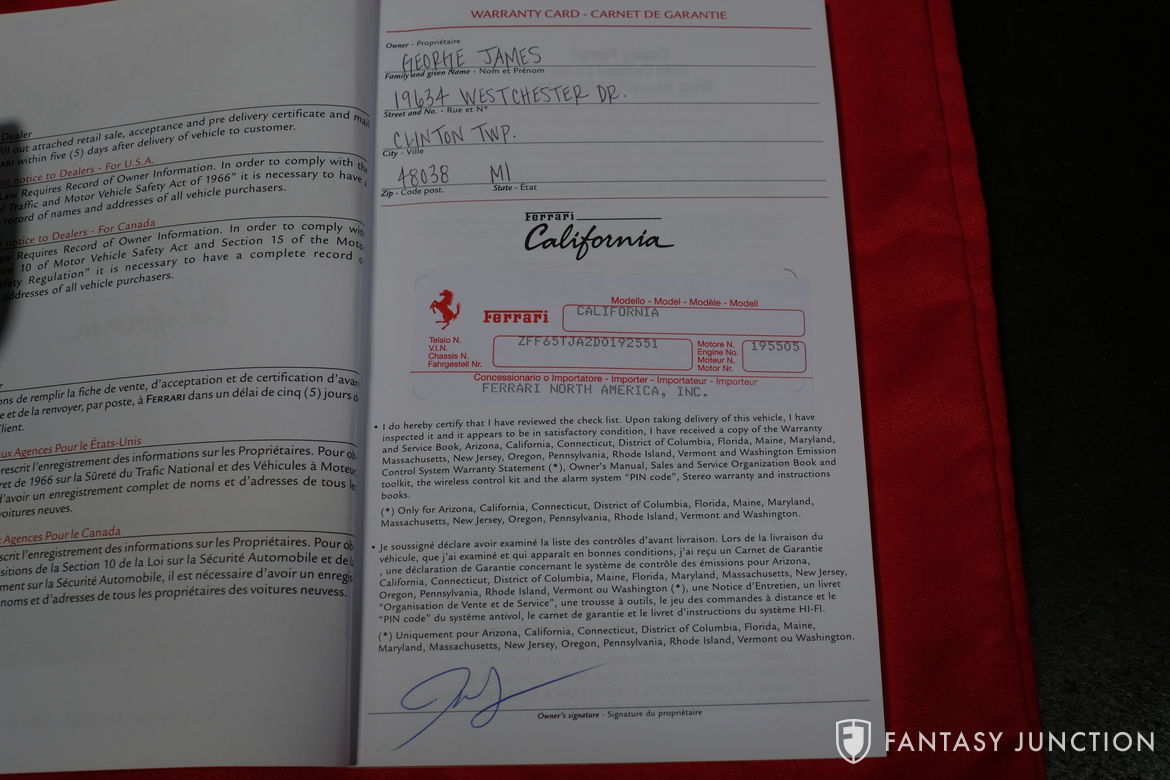 Dealer
ill out attached retail sale, acceptance and pre delivery certificate and mail
ARI within five (5) days after delivery of vehicle to customer.
nt notice to Dealers - For U.S.A.
Law Requires Record of Owner Information. In order to comply with the
l Traffic and Motor Vehicle Safety Act of 1966" it is necessary to have
record of names and addresses of all vehicle purchasers.
notice to Dealers - For Canada
w Requires Record of Owner Information. In order to comply with
on 10 of Motor Vehicle Safety Act and Section 15 of the Moto
afety Regulation" it is necessary to have a complete record o
addresses of all vehicle purchasers.
r
ons de remplir la fiche de vente, d'acceptation et de certification d'avan
e et de la renvoyer, par poste, à FERRARI dans un délai de cinq (5) jours d
Client.
aux Agences Pour le États-Unis
rescrit l'enregistrement des informations sur les Propriétaires. Pour ob
ret de 1966 sur la Sûreté du Trafic National et des Véhicules à Moteur
d'avoir un enregistrement complet de noms et d'adresses de tous les
voitures neuves.
x Agences Pour le Canada
scrit l'enregistrement des informations sur les Propriétaires. Pour ob
sitions de la Section 10 de la Loi sur la Sécurité Automobile et de la
ment sur la Sécurité Automobile, il est nécessaire d'avoir un enregis-
noms et d'adresses de tous les propriétaires des voitures neuvess.
WARRANTY CARD - CARNET DE GARANTIE
Owner - Propriétaire
GEORGE JAMES
Family and given Name - Nom et Prénom
19634 WESTCHESTER DR.
Street and No. - Rue et N°
CLINTON TWP.
City - Ville
48038 MI
Zip - Code post. State - État
Ferrari
California
Modello - Model - Modèle - Modell
Ferrari CALIFORNIA
Telaio N.
V.I.N.
Chassis N.
Fahrgestell Nr.
ZFF65TJA2D0192551
Motore N.
Engine No.
Moteur N.
Motor Nr.
195505
Concessionario o Importatore - Importer - Importateur - Importeur
FERRARI NORTH AMERICA, INC.
• I do hereby certify that I have reviewed the check list. Upon taking delivery of this vehicle, I have
inspected it and it appears to be in satisfactory condition, I have received a copy of the Warranty
and Service Book, Arizona, California, Connecticut, District of Columbia, Florida, Maine, Maryland,
Massachusetts, New Jersey, Oregon, Pennsylvania, Rhode Island, Vermont and Washington Emission
Control System Warranty Statement (*), Owner's Manual, Sales and Service Organization Book and
toolkit, the wireless control kit and the alarm system "PIN code", Stereo warranty and instructions
books.
(*) Only for Arizona, California, Connecticut, District of Columbia, Florida, Maine, Maryland,
Massachusetts, New Jersey, Oregon, Pennsylvania, Rhode Island, Vermont and Washington.
• Je soussigné déclare avoir examiné la liste des contrôles d'avant livraison. Lors de la livraison du
véhicule, que j'ai examiné et qui apparaît en bonnes conditions, j'ai reçu un Carnet de Garantie
, une déclaration de Garantie concernant le système de contrôle des émissions pour Arizona,
California, Connecticut, District of Columbia, Maine, Florida, Maryland, Massachusetts, New Jersey,
Oregon, Pennsylvania, Rhode Island, Vermont ou Washington (*), une Notice d'Entretien, un livret
"Organisation de Vente et de Service", une trousse à outils, le jeu des commandes à distance et le
"PIN code" du système antivol, le carnet de garantie et le livret d'instructions du système HI-FI.
(*) Uniquement pour Arizona, California, Connecticut, District of Columbia, Florida, Maine,
Maryland, Massachusetts, New Jersey, Oregon, Pennsylvania, Rhode Island, Vermont ou Washington.
Owner's signature - Signature du propriétaire
FANTASY JUNCTION